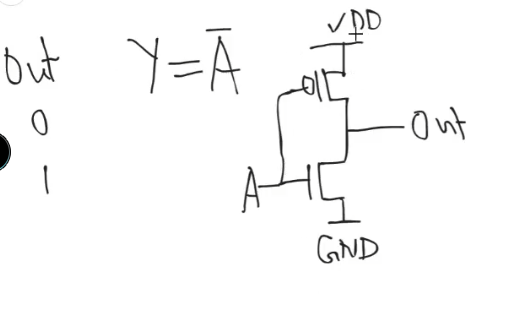 Out
0
1
Y = A̅
VDD
A
Out
GND